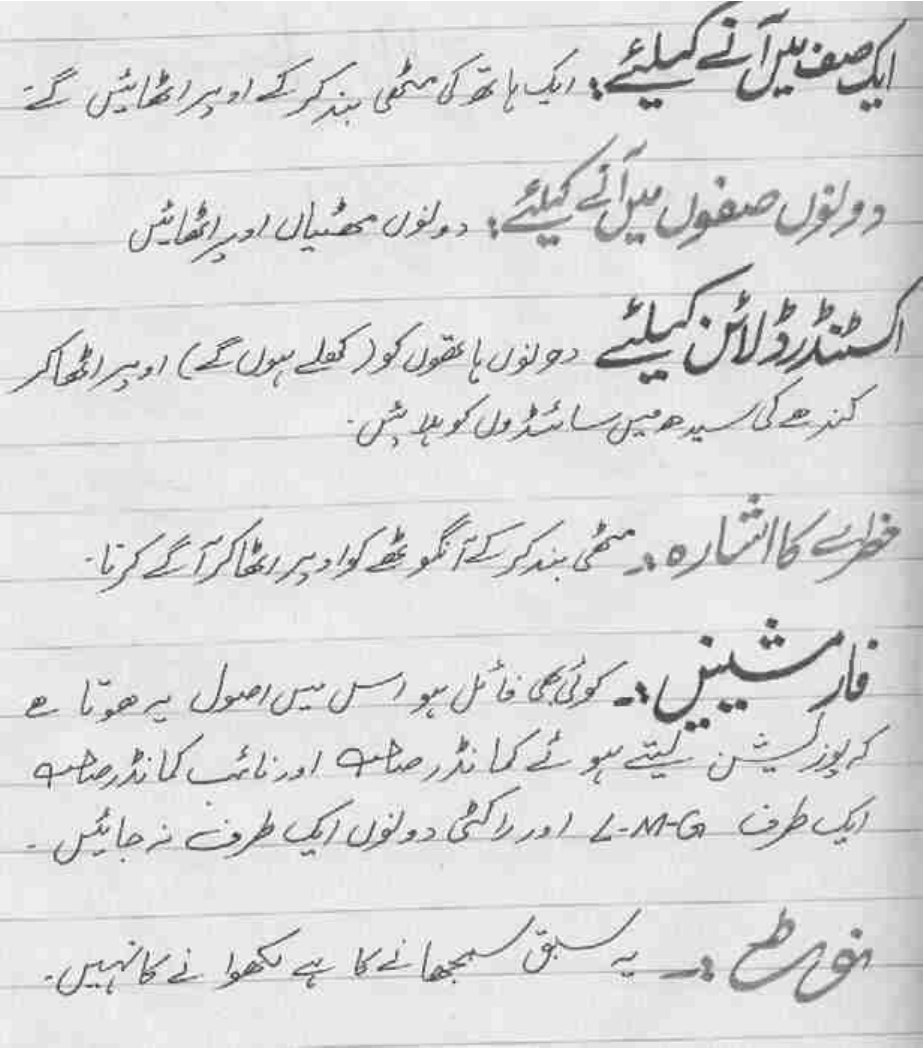 ایک صف میں آنے کیلئے: ایک ہاتھ کی مٹھی بند کر کے اوپر اٹھائیں گے۔
دونوں صفوں میں آنے کیلئے: دونوں مٹھیاں اوپر اٹھائیں
اکسٹنڈرڈ لائن کیلئے دونوں ہاتھوں کو (کھلے ہوں گے) اوپر اٹھا کر
کندھے کی سیدھ میں سائیڈوں کو ہلائیں۔
خطرے کا اشارہ :۔ مٹھی بند کر کے آنگوٹھے کو اوپر اٹھا کر آگے کرنا۔
فارمشینیں :۔ کوئی بھی فائل ہو اس میں اصول یہ ھوتا ھے
کہ پوزیشن لیتے ہوئے کمانڈر صاحب اور نائب کمانڈر صاحب
ایک طرف L-M-G اور راکٹی دونوں ایک طرف نہ جائیں۔
نوٹ :۔ یہ سبق سمجھانے کا ہے لکھوانے کا نہیں۔